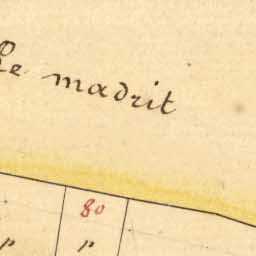 Le madrit
80
p p